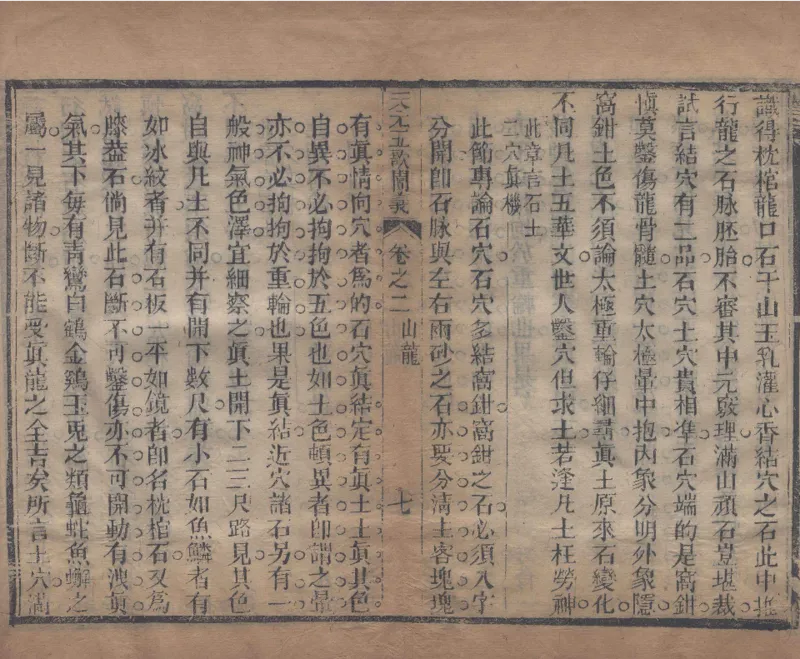 識得枕棺龍口石干山玉乳灌心香結穴之石此中推
行龍之石脉胚胎不審其中元竅理滿山頑石豈堪裁
試言結穴有二品石穴土穴貴相準石穴端的是窩鉗
愼莫鑿傷龍骨髓土穴太極暈中抱內象分明外象隱
窩鉗土色不須論太極重輪仔細尋眞土原來石變化
不同凡土五華文世人鑿穴但求土若逢凡土枉勞神
此章言石土
二穴眞機
此節專論石穴石穴多結窩鉗窩鉗之石必須八字
分開即石脉與左右兩砂之石亦要分淸主客塊塊
天元五歌闡義 卷之二 山龍 七
有眞情向穴者為的石穴眞結定有眞土土眞其色
自異不必拘拘於五色也如土色頓異者即謂之暈
亦不必拘拘於重輪也果是眞結近穴諸石另有一
般神氣色澤宜細察之眞土開下二三尺路見其色
自與凡土不同并有開下數尺有小石如魚鱗者有
如冰紋者并有石板一平如鏡者即名枕棺石又為
膝葢石倘見此石斷不可鑿傷亦不可開動有洩眞
氣其下每有靑鸞白鶴金鷄玉兎之類龜蛇魚蠏之
屬一見諸物斷不能受眞龍之全吉矣所言土穴滿